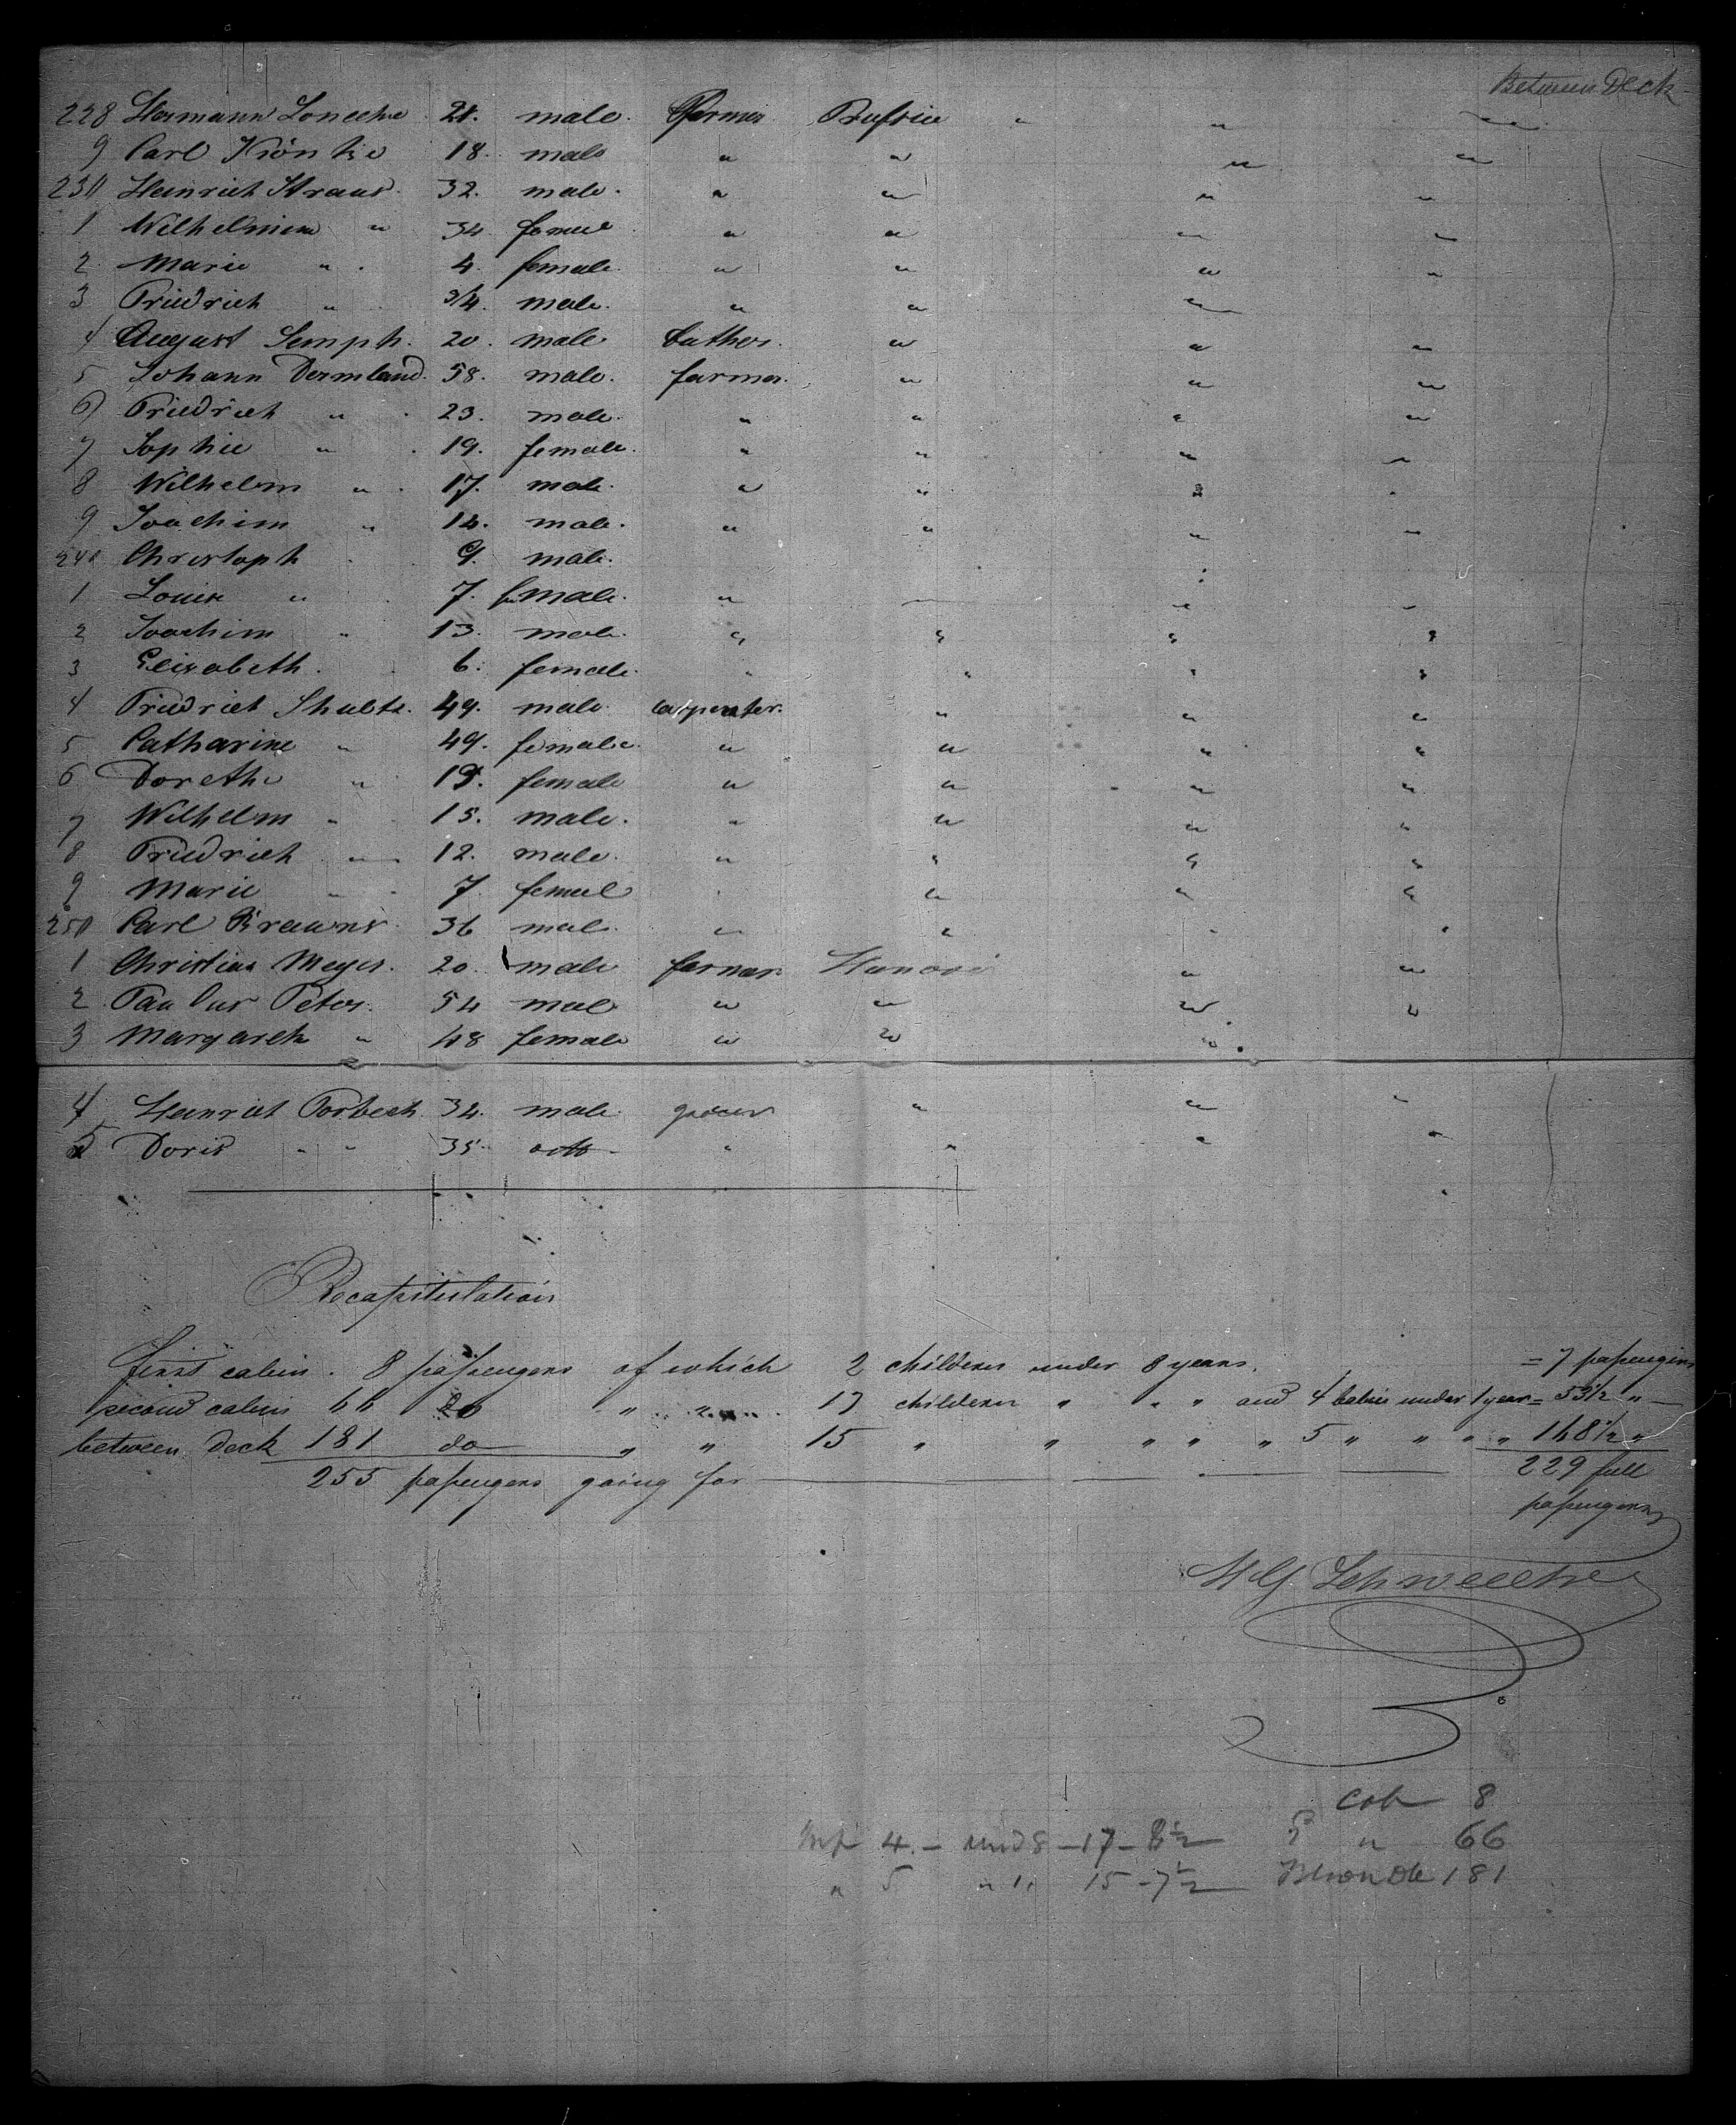 Between Deck
228 Hermann Loncethe 21. male. Farmer Prussia " " "
9 Carl Krönke 18. male " " " "
230 Heinrich Straus. 32. male. " " " "
1 Wilhelmine " 34 female " " " "
2 Marie " 4. female. " " " "
3 Friedrich " 3/4. male. " " "
4 August Semph. 20. male " " "
5 Johann Dermland. 58. male. farmer. " " "
6 Friedrich " 23. male. " " " "
7 Sophie " 19. female. " " " "
8 Wilhelm " 17. male. " " " "
9 Joachim " 14. male. " " " "
240 Christoph 9. male.
1 Louise " 7. female. " " " "
2 Joachim " 13. male. " " " "
3 Elisabeth. 6. female. " " " "
4 Friedrich Shultz. 49. male. carpenter. " " "
5 Catharine " 49. female. " " " "
6 Dorethe " 19. female " " " "
7 Wilhelm " 15. male. " " " "
8 Friedrich " 12. male. " " " "
9 Marie " 7. female " " "
250 Carl Brauns 36 male. " "
1 Christian Meyer. 20. male farmer Hanover " "
2 Paulus Peter. 54 male " " " "
3 Margareth " 48 female " " "
4 Heinrich Forbech. 34. male grocer " " "
5 Doris " " 35. " " " "
Recapitulation
first cabin. 8 passengers of which 2 children under 8 years. = 7 passengers
second cabin 66 do " " 17 children " " " and 4 babies under 1 year = 53 1/2 "
between deck 181 do " " 15 " " " " " 5 " " " " 168 1/2 "
255 passengers going for 229 full
passengers
Cab 8
Inf 4. - und 8 - 17 - 8 1/2 " 66
" 5 " " 15 - 7 1/2 181